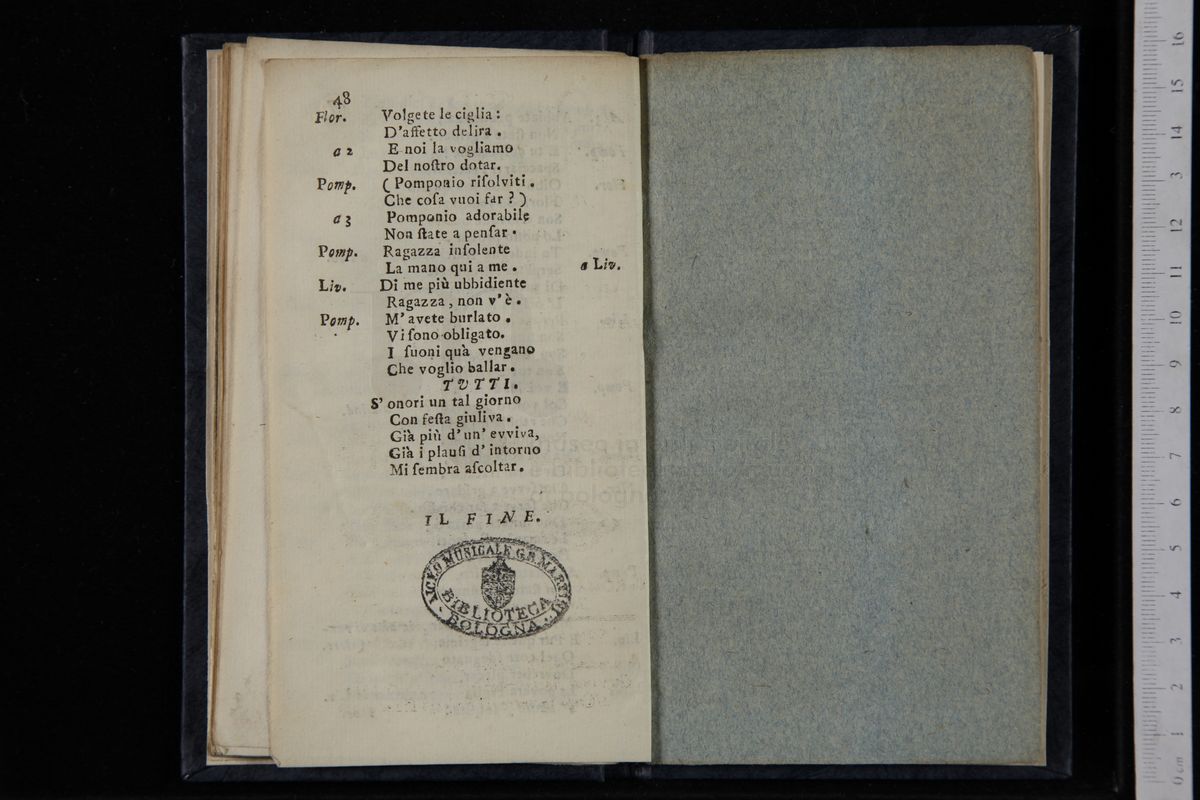 48
Flor. Volgete le ciglia :
D'affetto delira .
a 2 E noi la vogliamo
Del noſtro dotar.
Pomp. ( Pomponio riſolviti .
Che coſa vuoi far ? )
a 3 Pomponio adorabile
Non ſtate a penſar .
Pomp. Ragazza inſolente
La mano qui a me . a Liv.
Liv. Di me più ubbidiente
Ragazza , non v'è .
Pomp. M'avete burlato .
Vi ſono obligato.
I ſuoni quà vengano
Che voglio ballar .
TUTTI.
S' onori un tal giorno
Con feſta giuliva .
Già più d'un' evviva,
Già i plauſi d' intorno
Mi ſembra aſcoltar .
IL FINE.
LICEO MUSICALE G.B. MARTINI
BIBLIOTECA
BOLOGNA
0 cm 1 2 3 4 5 6 7 8 9 10 11 12 13 14 15 16